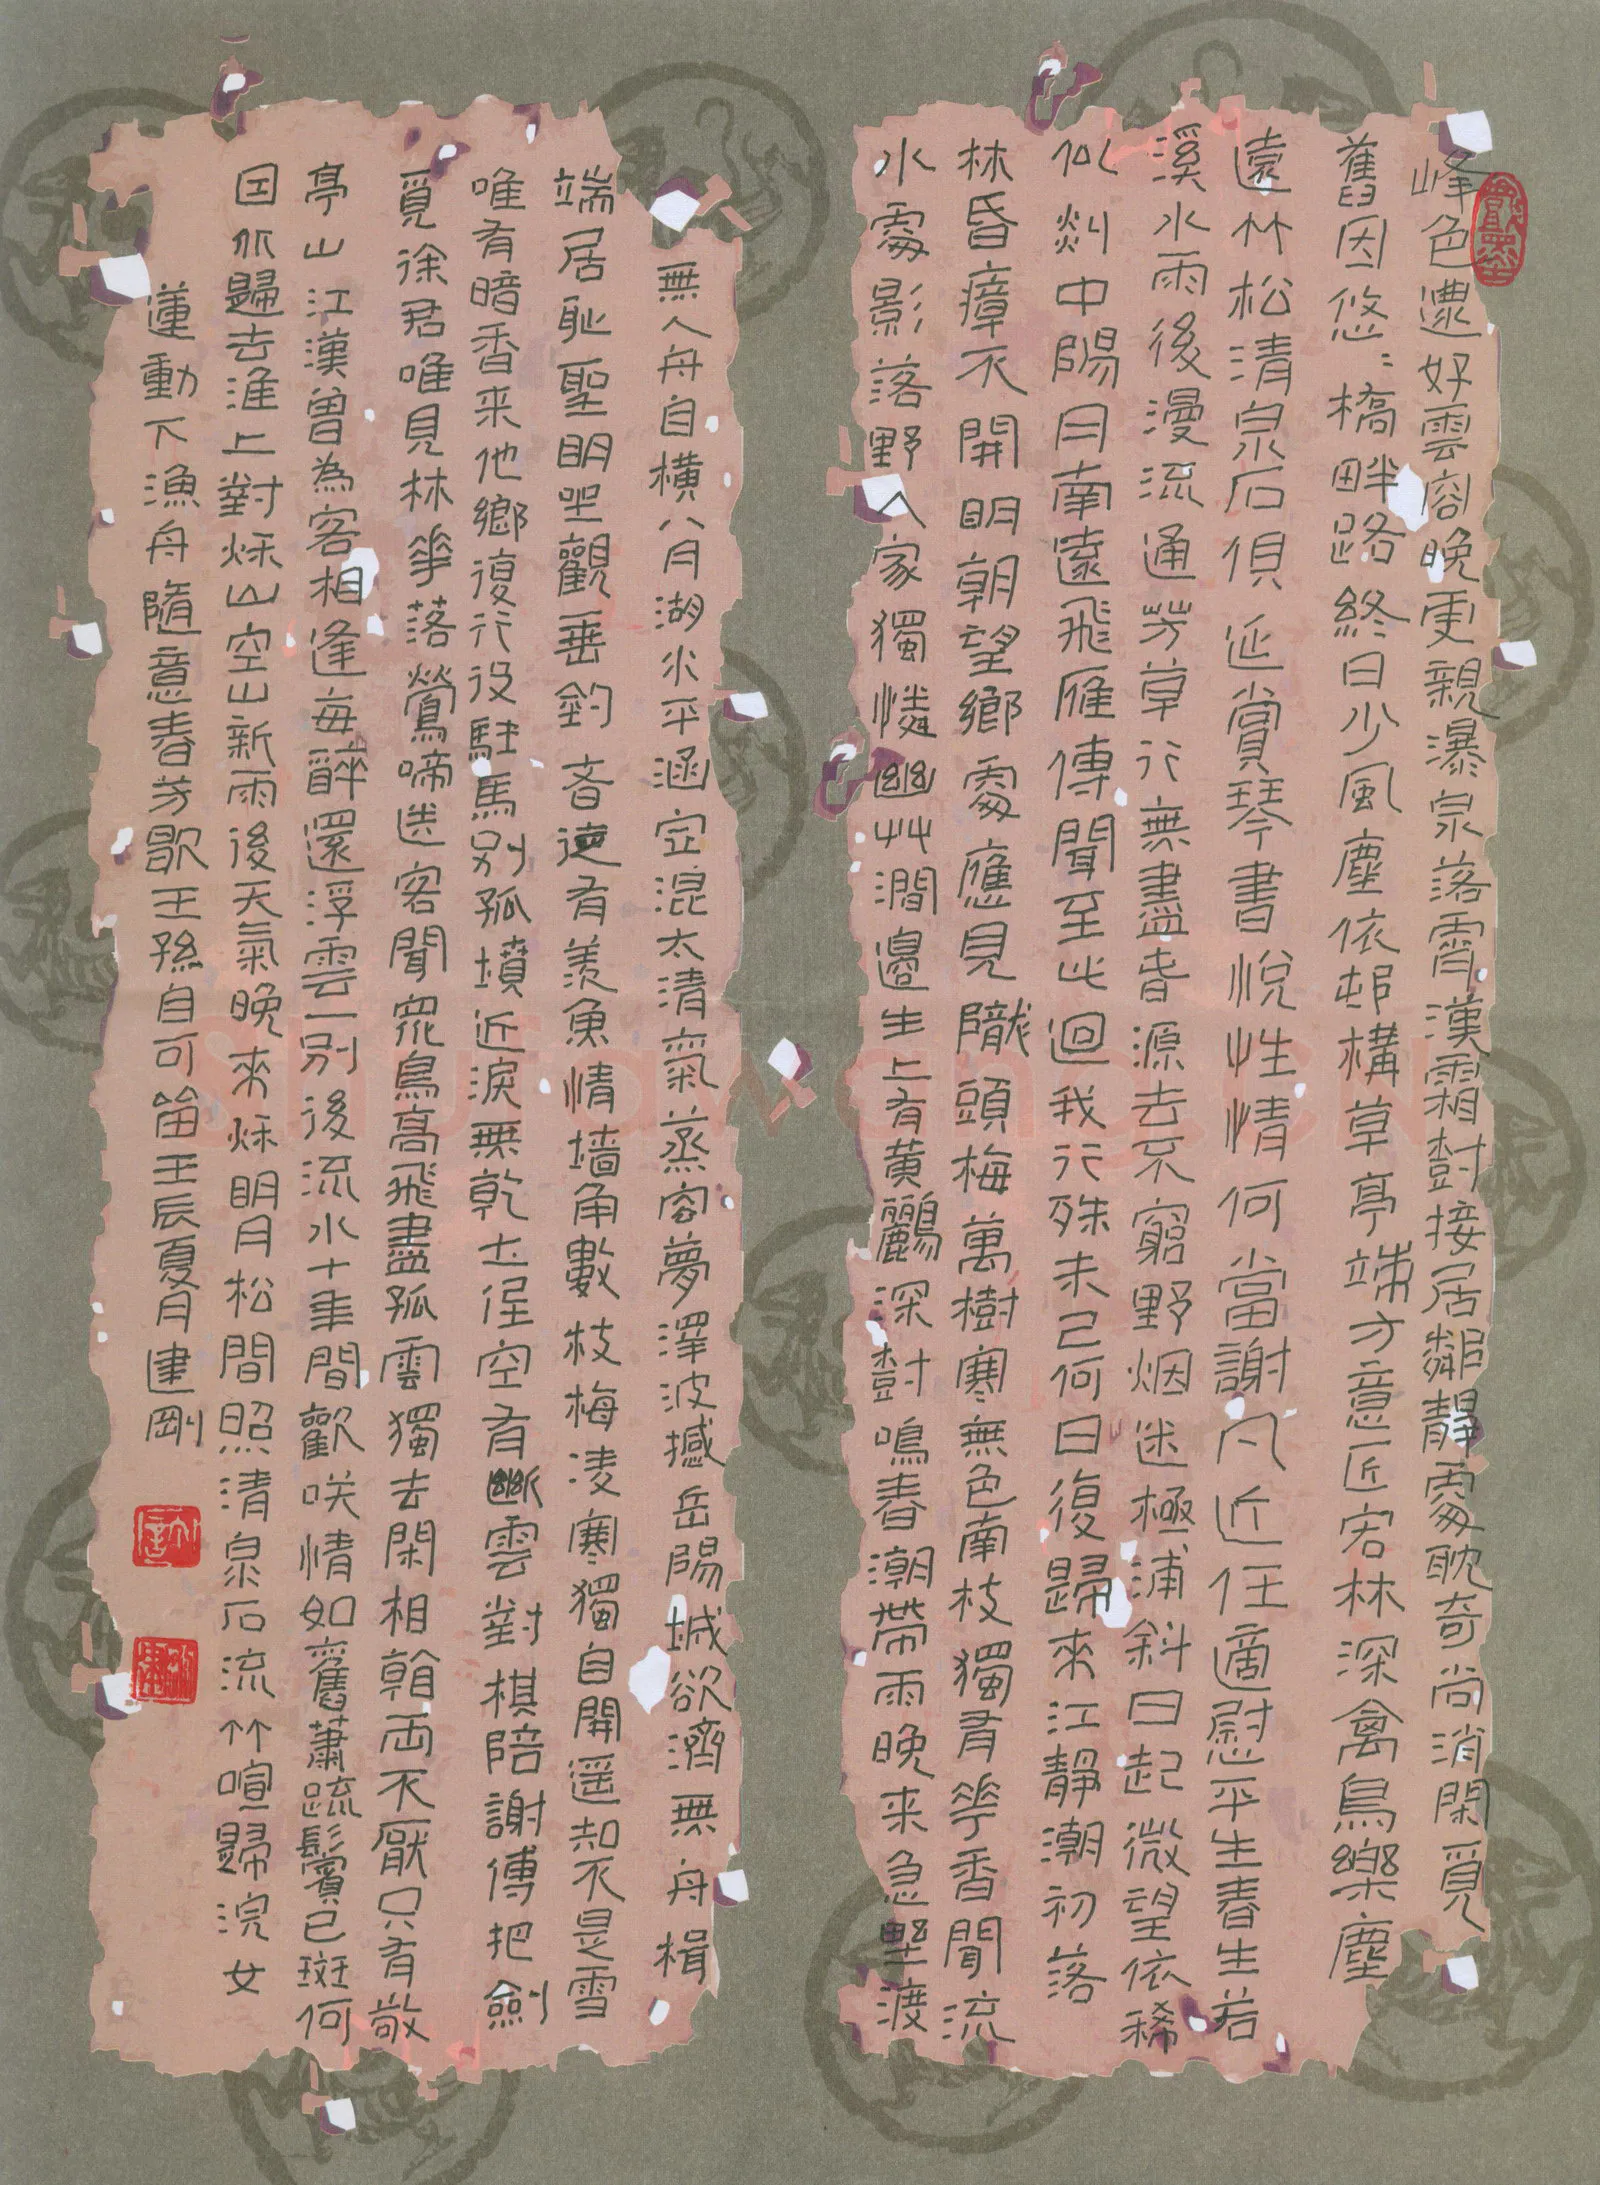 峰色遭好雲容晚更親瀑泉落霄漢霜樹接居鄰靜處耽奇尚消閑覓
舊因悠〻橋畔路終日少風塵依邨構草亭端方意匠宏林深禽鳥樂塵
遠竹松清泉石俱延賞琴書悅性情何當謝凡近任適慰平生春生若
溪水雨後漫流通芳草行無盡春源去不窮野烟迷極浦斜日起微望依稀
似剡中陽月南遠飛雁傳聞至此迴我行殊未已何日復歸來江靜潮初落
林昏瘴不開明朝望鄉處應見隴頭梅萬樹寒無色南枝獨有華香聞流
水處影落野人家獨憐幽艸澗邊生上有黃鸝深樹鳴春潮帶雨晚来急野渡
無人舟自横八月湖水平涵空混太清氣蒸容夢澤波撼岳陽城欲濟無舟楫
端居恥聖明坐觀垂釣者徒有羨魚情墙角數枝梅凌寒獨自開遥知不是雪
唯有暗香来他鄉復行役駐馬别孤墳近淚無乾土徑空有斷雲對棋陪謝傅把劍
覓徐君唯見林華落鶯啼送客聞眾鳥高飛盡孤雲獨去閑相看兩不厭只有敬
亭山江漢曾為客相逢每醉還浮雲一别後流水十年間歡咲情如舊蕭疏鬢已斑何
因不歸去淮上對秌山空山新雨後天氣晚來秌明月松間照清泉石流竹喧歸浣女
蓮動下漁舟隨意春芳歇王孫自可留壬辰夏月建剛